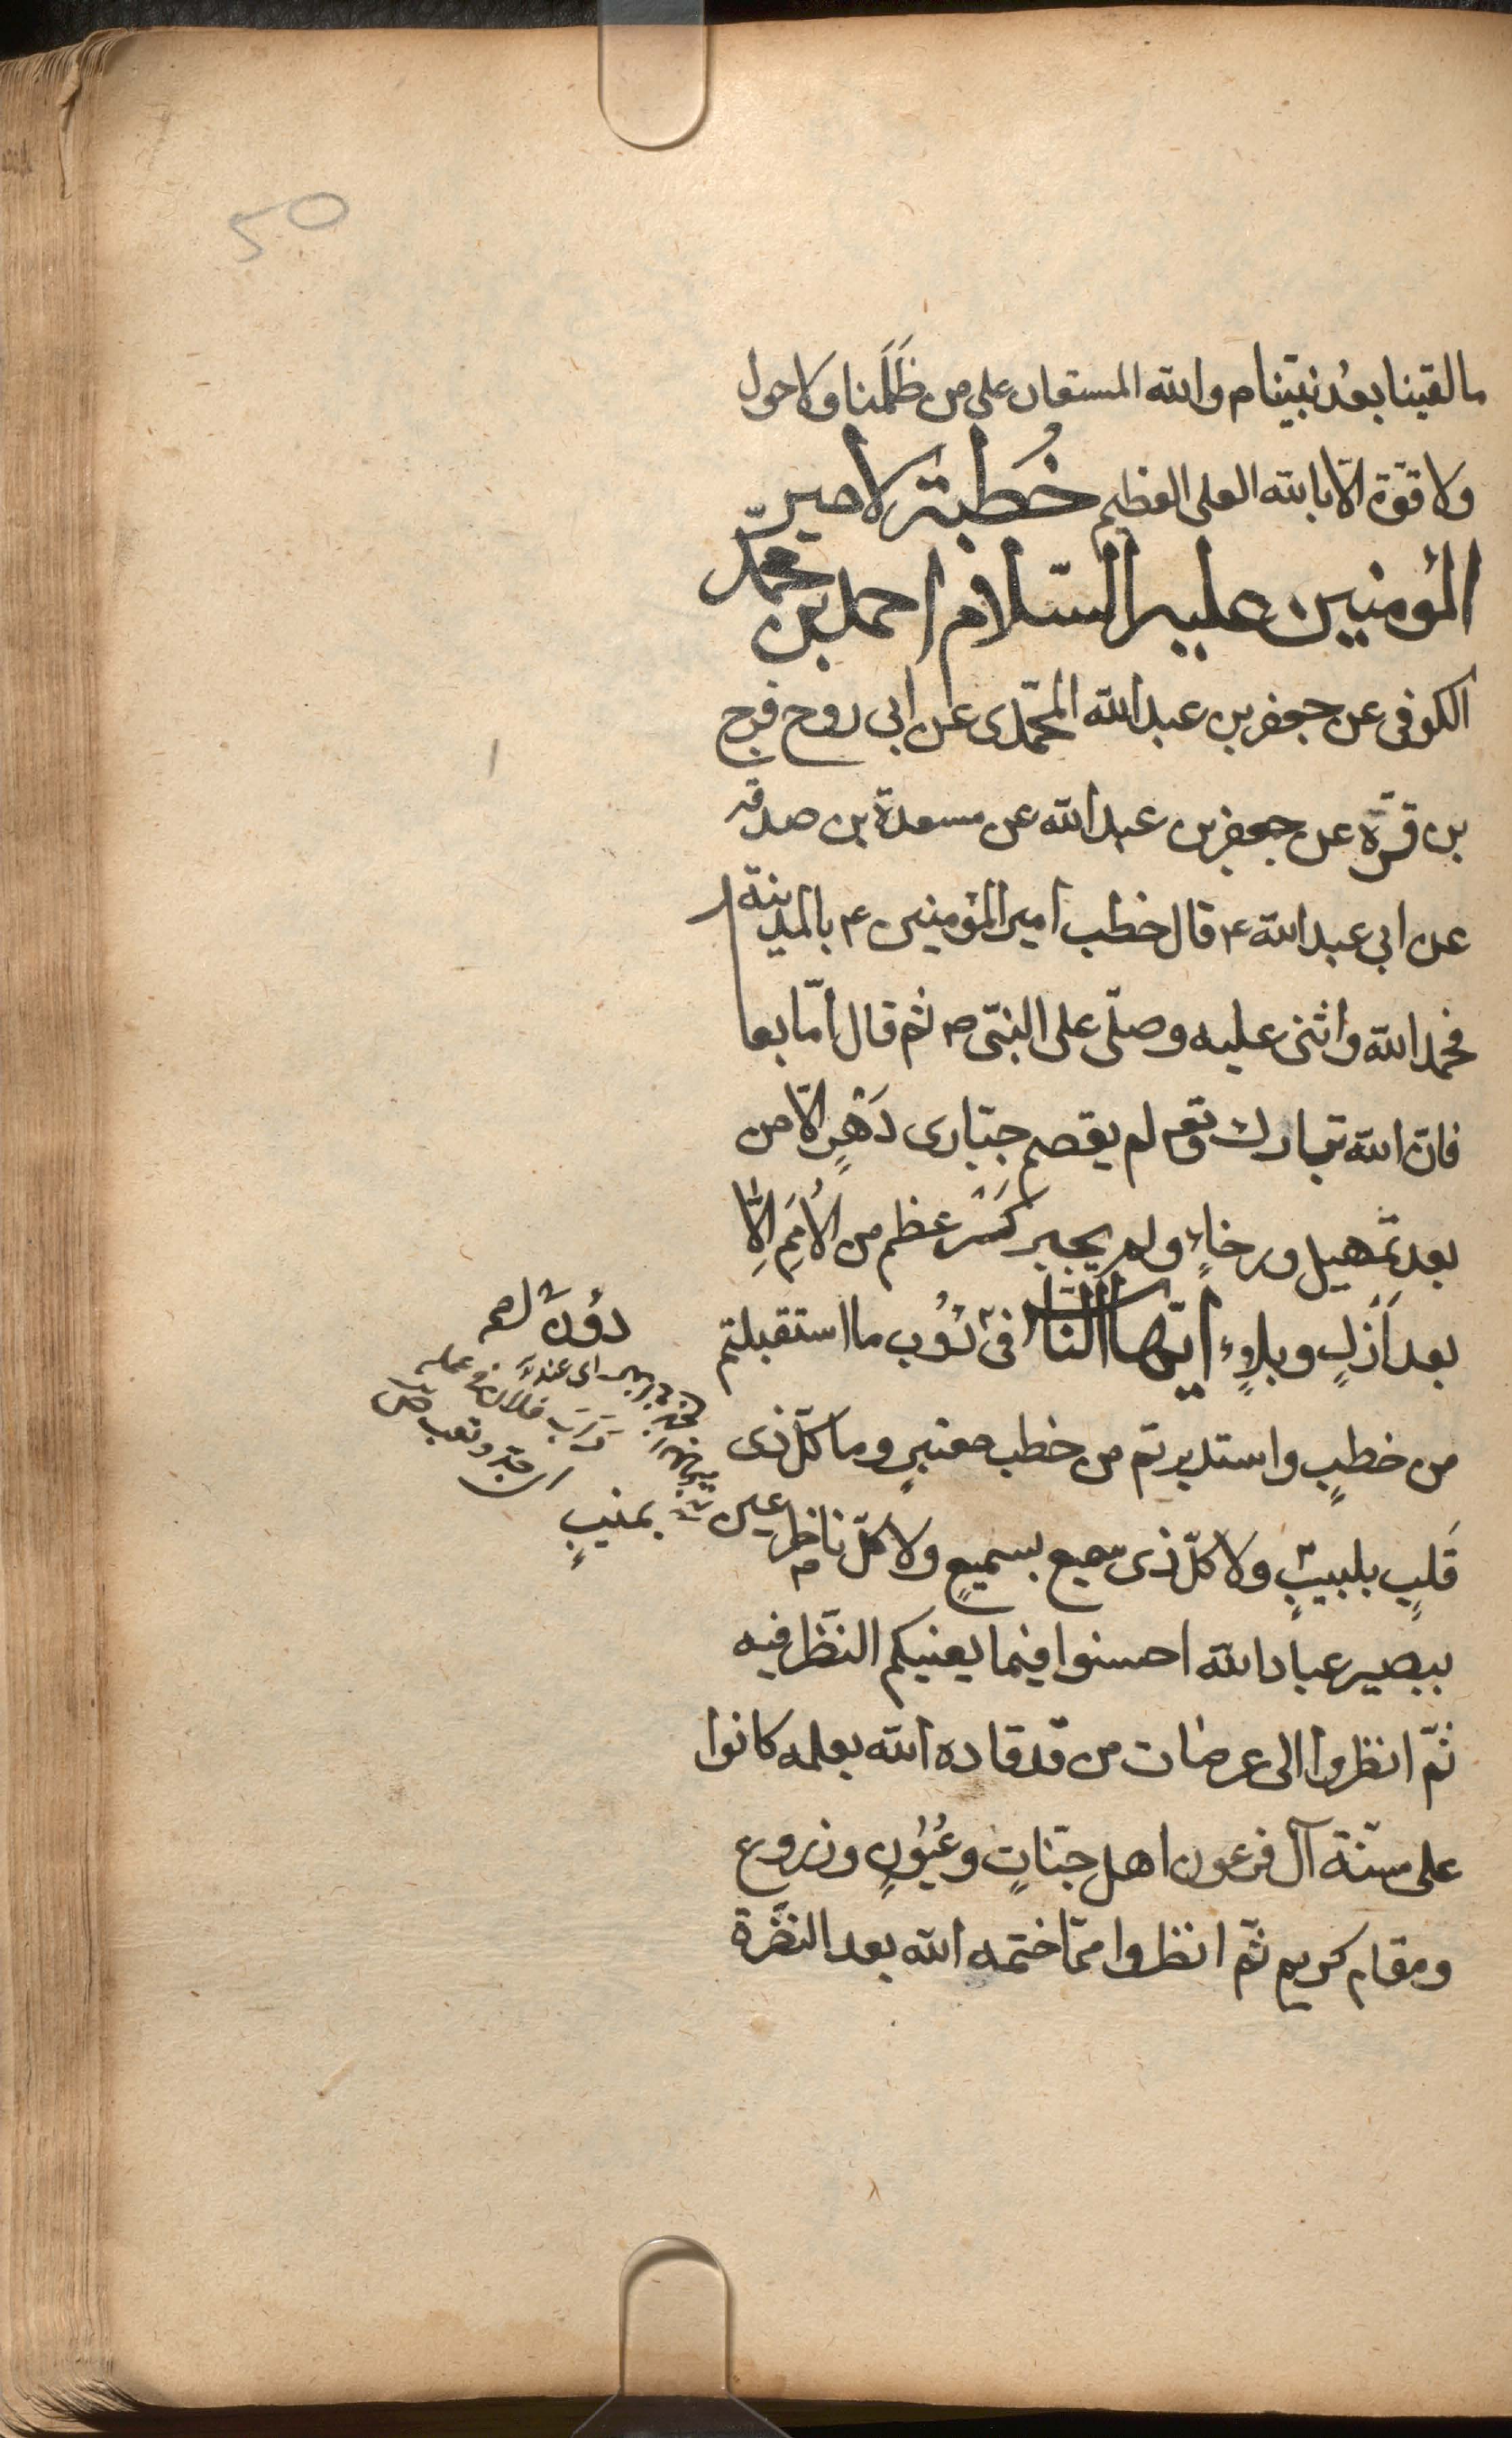 50
ما لقينا بعد نبيّنا م والله المستعان على من ظَلَمَنا ولا حول
ولا قوّة الّا بالله العلى العظيم خُطبة لامير
المؤمنين عليه السّلام احمد بن محمّد
الكوفى عن جعفر بن عبدالله المحمّدى عن ابى روح فرج
بن قرّة عن جعفر بن عبدالله عن مسعدة بن صدقه
عن ابى عبدالله ع قال خطب امير المؤمنين ع بالمدينة
فحمدالله واثنى عليه وصلّى على النبىّ ص ثم قال امّا بعد
فان الله تبارك وتع لم يقصم جبّارى دَهْرٍ الّا من
بعد تمهيل ورخاءٍ ولم يجبر كَسْر عظم من الاُمَمِ اِلّا
بعد اَزْلٍ وبلاءٍ ايّها النّاس فى دُوْب ما استقبلتم
من خطبٍ واستدبرتم من خطب معتبرٍ وما كلّ ذى
قَلبٍ بلبيبٍ ولا كلّ ذى سمع بسميعٍ ولا كلّ ناظر عين
ببصير عبادالله احسنوا فيما يعنيكم النّظر فيه
ثمّ انظروا الى عرضات من قد قاده الله بعلمه كانوا
على سنّة آل فرعون اهل جنّاتٍ وعُيُونٍ وزروع
ومقام كريم ثمّ انظروا ممّا ختمه الله بعد النضرة
دون لهم
فلان فى عمله
جدّ وتعب
بمنيبٍ